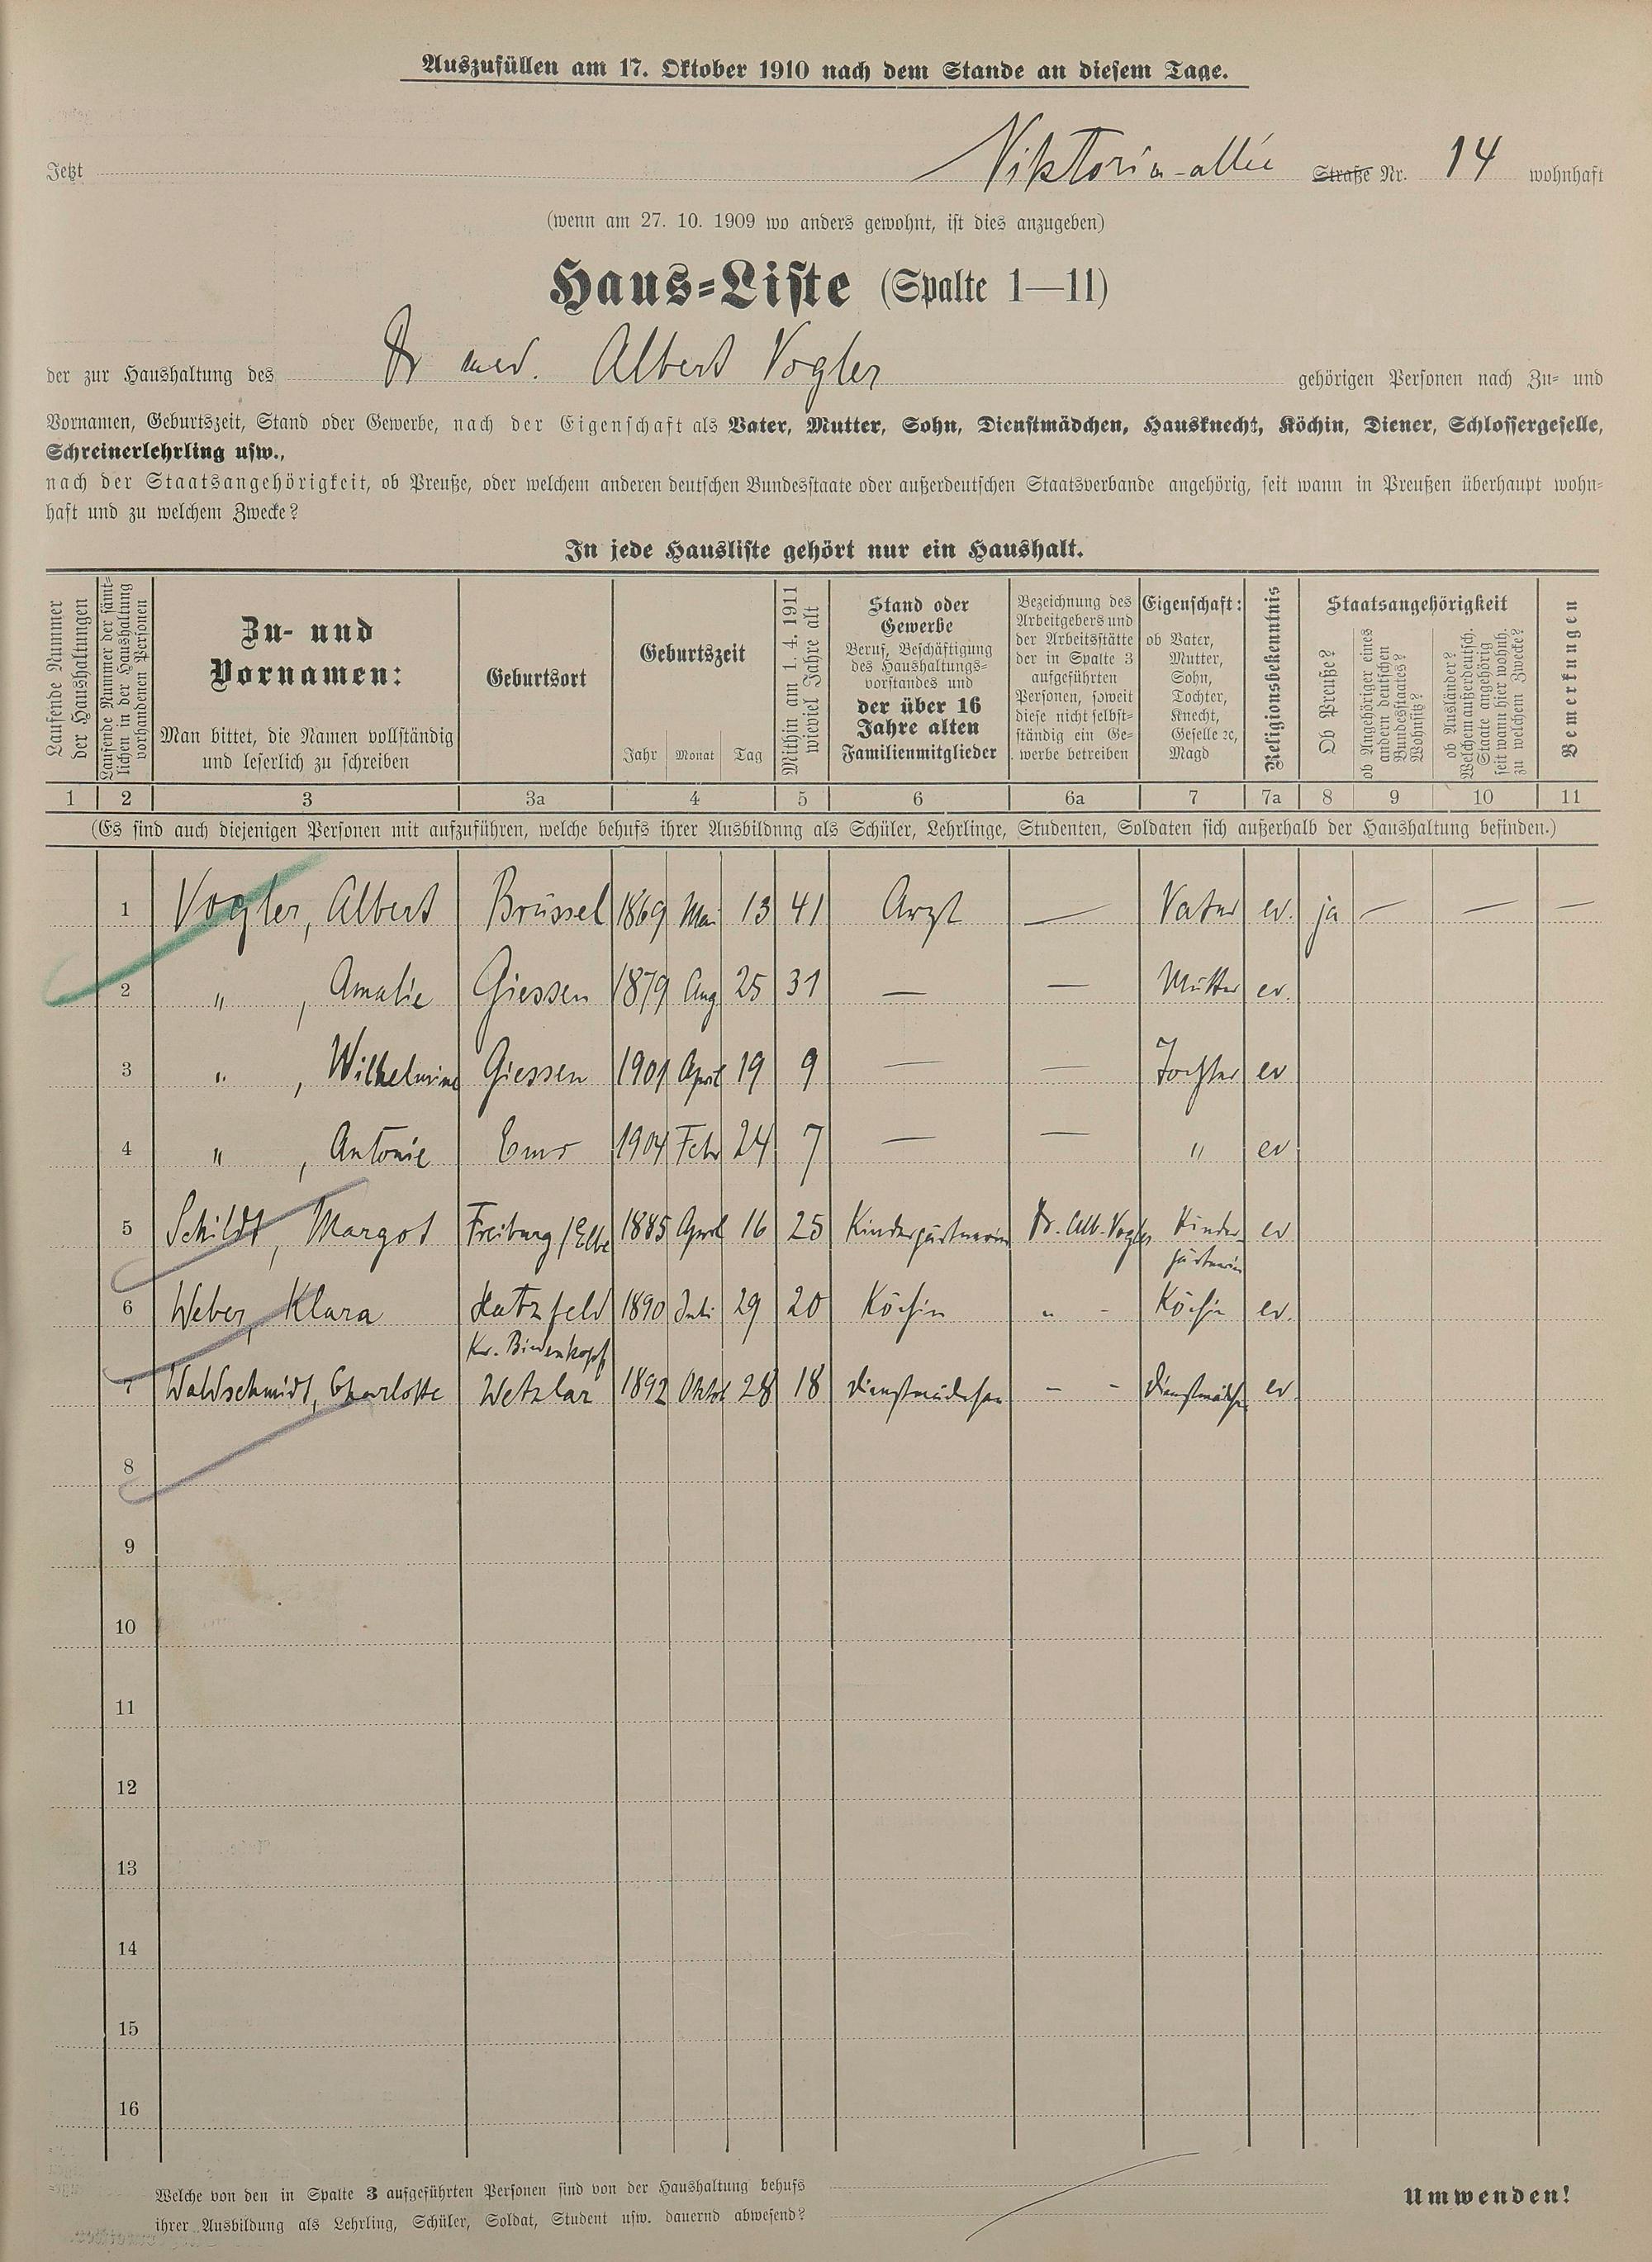 Auszufüllen am 17. Oktober 1910 nach dem Stande an diesem Tage.
Jetzt Viktoria-allee Straße Nr. 14 wohnhaft
(wenn am 27. 10. 1909 wo anders gewohnt, ist dies anzugeben)
Haus-Liste (Spalte 1—11)
der zur Haushaltung des Dr med. Albert Vogler gehörigen Personen nach Zu- und
Vornamen, Geburtszeit, Stand oder Gewerbe, nach der Eigenschaft als Vater, Mutter, Sohn, Dienstmädchen, Hausknecht, Köchin, Diener, Schlossergeselle,
Schreinerlehrling usw.,
nach der Staatsangehörigkeit, ob Preuße, oder welchem anderen deutschen Bundesstaate oder außerdeutschen Staatsverbande angehörig, seit wann in Preußen überhaupt wohn-
haft und zu welchem Zwecke?
In jede Hausliste gehört nur ein Haushalt.
Laufende Nummer
der Haushaltungen
Laufende Nummer der sämt-
lichen in der Haushaltung
vorhandenen Personen
Zu- und
Vornamen:
Man bittet, die Namen vollständig
und leserlich zu schreiben
Geburtsort
Geburtszeit
Jahr Monat Tag
Mithin am 1. 4. 1911
wieviel Jahre alt
Stand oder
Gewerbe
Beruf, Beschäftigung
des Haushaltungs-
vorstandes und
der über 16
Jahre alten
Familienmitglieder
Bezeichnung des
Arbeitgebers und
der Arbeitsstätte
der in Spalte 3
aufgeführten
Personen, soweit
diese nicht selbst-
ständig ein Ge-
werbe betreiben
Eigenschaft:
ob Vater,
Mutter,
Sohn,
Tochter,
Knecht,
Geselle ꝛc,
Magd
Religionsbekenntnis
Staatsangehörigkeit
Ob Preuße?
ob Angehöriger eines
andern deutschen
Bundesstaates?
Wohnsitz?
ob Ausländer?
Welchen außerdeutsch.
Staate angehörig
seit wann hier wohnh.
zu welchem Zwecke?
Bemerkungen
1 2 3 3a 4 5 6 6a 7 7a 8 9 10 11
(Es sind auch diejenigen Personen mit aufzuführen, welche behufs ihrer Ausbildung als Schüler, Lehrlinge, Studenten, Soldaten sich außerhalb der Haushaltung befinden.)
1 Vogler, Albert Brüssel 1869 Mai 13 41 Arzt — Vater ev. ja — — —
2 " , Amalie Giessen 1879 Aug 25 31 — — Mutter ev.
3 " , Wilhelmine Giessen 1901 April 19 9 — — Tochter ev
4 " , Antonie Ems 1904 Febr 24 7 — — " ev
5 Schildt, Margot Freiburg/Elbe 1885 April 16 25 Kindergärtnerin Dr. Alb. Vogler Kinder
gärtnerin ev
6 Weber, Klara Hatzfeld 1890 Juli 29 20 Köchin " - Köchin ev.
Kr. Biedenkopf
7 Waldschmidt, Charlotte Wetzlar 1892 Oktob 28 18 Dienstmädchen - - Dienstmädchen ev.
8
9
10
11
12
13
14
15
16
Welche von den in Spalte 3 aufgeführten Personen sind von der Haushaltung behufs
ihrer Ausbildung als Lehrling, Schüler, Soldat, Student usw. dauernd abwesend?
Umwenden!